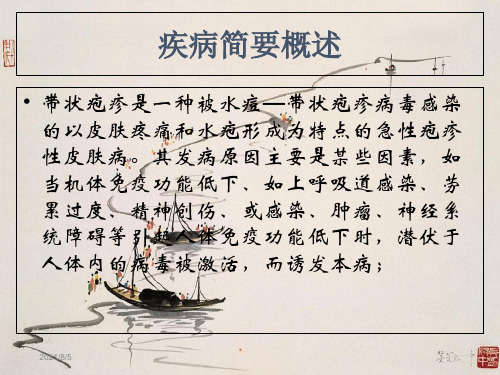 疾病简要概述
• 带状疱疹是一种被水痘—带状疱疹病毒感染
的以皮肤疼痛和水疱形成为特点的急性疱疹
性皮肤病。其发病原因主要是某些因素，如
当机体免疫功能低下、如上呼吸道感染、劳
累过度、精神创伤、或感染、肿瘤、神经系
统障碍等引起人体免疫功能低下时，潜伏于
人体内的病毒被激活，而诱发本病；
2021/8/5